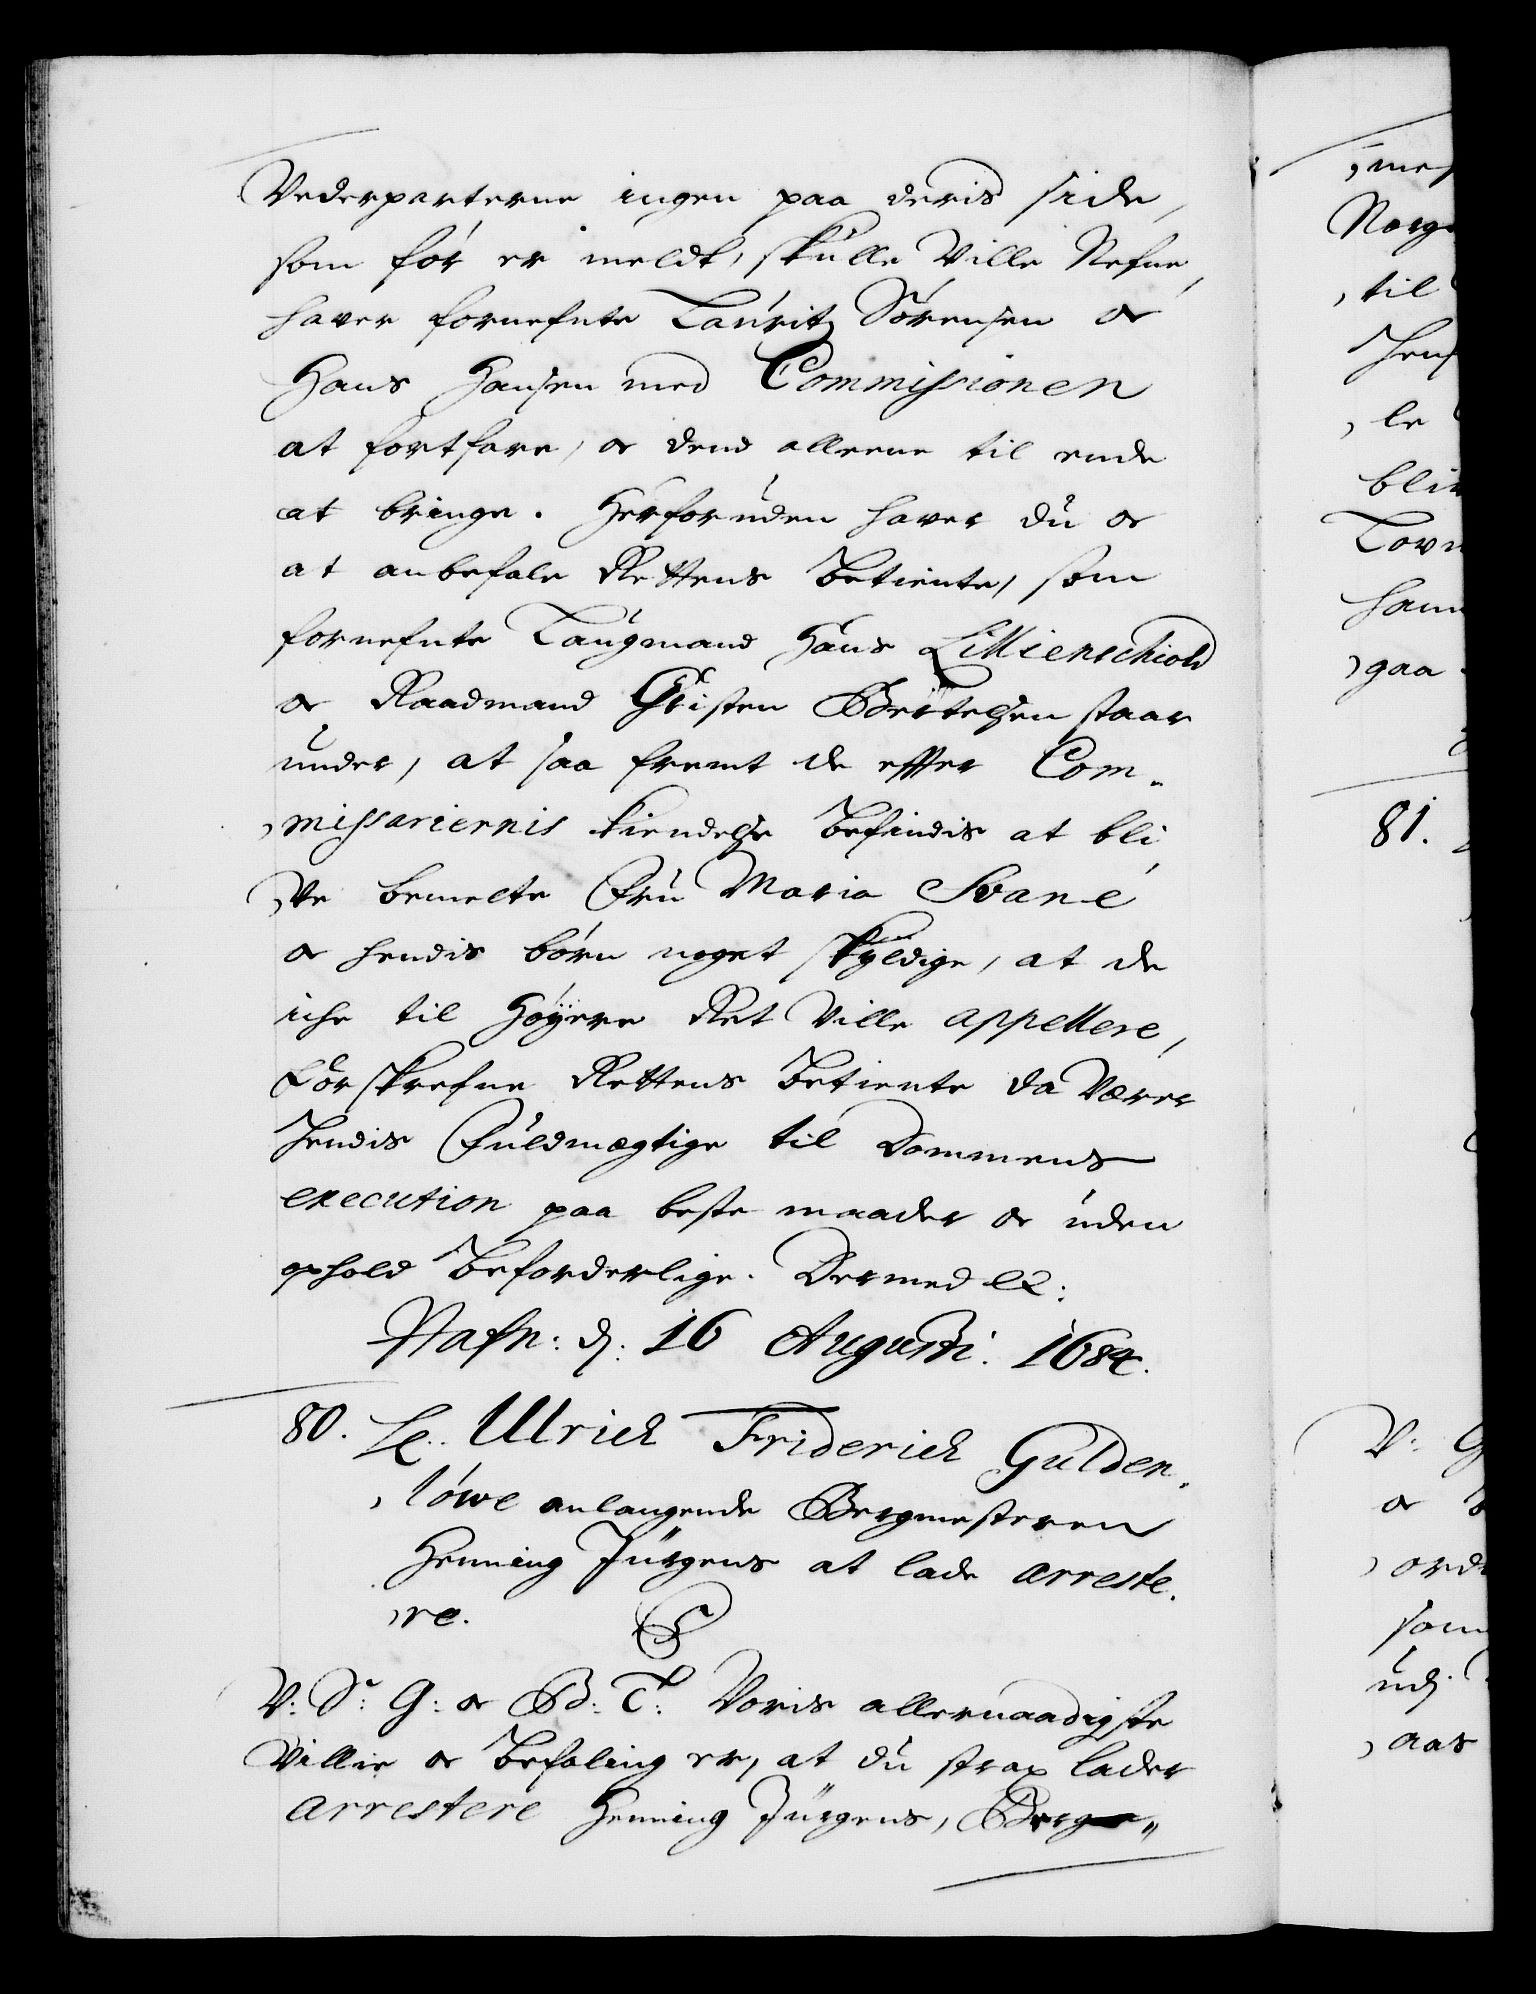 Vederparterne ingen paa deris side,
som før er meldt, skulle Ville Nefne,
haver fornefnte Lauritz Sørensen oc
Hans Hansen med Commissionen
at fortfare, oc dend alleene til ende
at bringe. Herforuden haver du oc
at anbefale Rettens Betiente, som
fornefnte Laugmand Hans Lillienschiold
oc Raadmand Christen Bertelsen staar
under, at saa fremt de effter Com-
missariernis kiendelse Befindis at bli
ve bemelte Fru Maria Svane
oc hendis børn noget skyldige, at de
iche til høyere Ret Ville appellere,
Forskrefne Rettens Betiente da Værer
hendis Fuldmegtige til Dommens
execution paa beste maader oc uden
ophold Beforderlige. Dermed etc:
Hafn: d: 16 Augusti. 1684.
80. Ulrich Friderich Gulden-
løwe anlangende Bergmesteren
Henning Jürgens at lade arreste-
re. S
V: S: G: oc B: T: Voris allernaadigste
Villie oc Befaling er, at du strax lader
arrestere Henning Jürgens, Berg-
81.